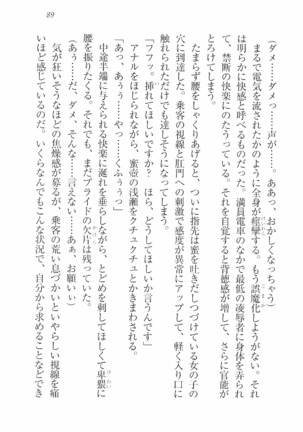 89
(ダメ……ダメっ……声が……。ああっ、おかしくなっちゃう)
まるで電気を流されたかのように全身が痙攣する。もう誤魔化しようがない。それ
は明らかに快感と呼べるものだった。満員電車のなかで最低の凌辱者に身体を弄られ
て、禁断の快楽にのたうっている。それを自覚すると背徳感が増して、さらに官能が
とろけてしまう。
たまらず腰をしゃくりあげると、ついに指先は蜜を吐きだしつづけている女の子の
穴に到達した。乗客の視線と肛門への刺激で感度が異常にアップして、軽く入り口に
触れられただけでも達しそうになってしまう。
「フフッ。挿れてほしいですか? ほら、どうしてほしいか言うんです」
アナルをほじられながら、蜜壺の浅瀬をクチュクチュとかきまわされる。
「あっ、あぅぅ……やっ……くふぅぅっ」
中途半端に与えられる快楽に涎を垂らしながら、とどめを刺してほしくて卑猥に
腰を振りたくる。それでも、まだプライドの欠片は残っていた。
(あぅ……だ、ダメ、そんな……言えない……ああ、お願い)
気が狂いそうなほどの焦燥感が募るが、乗客の荒い息づかいといやらしい視線を痛
いほど感じているのだ。いくらなんでもこんな状況で、自分から求めることなどでき